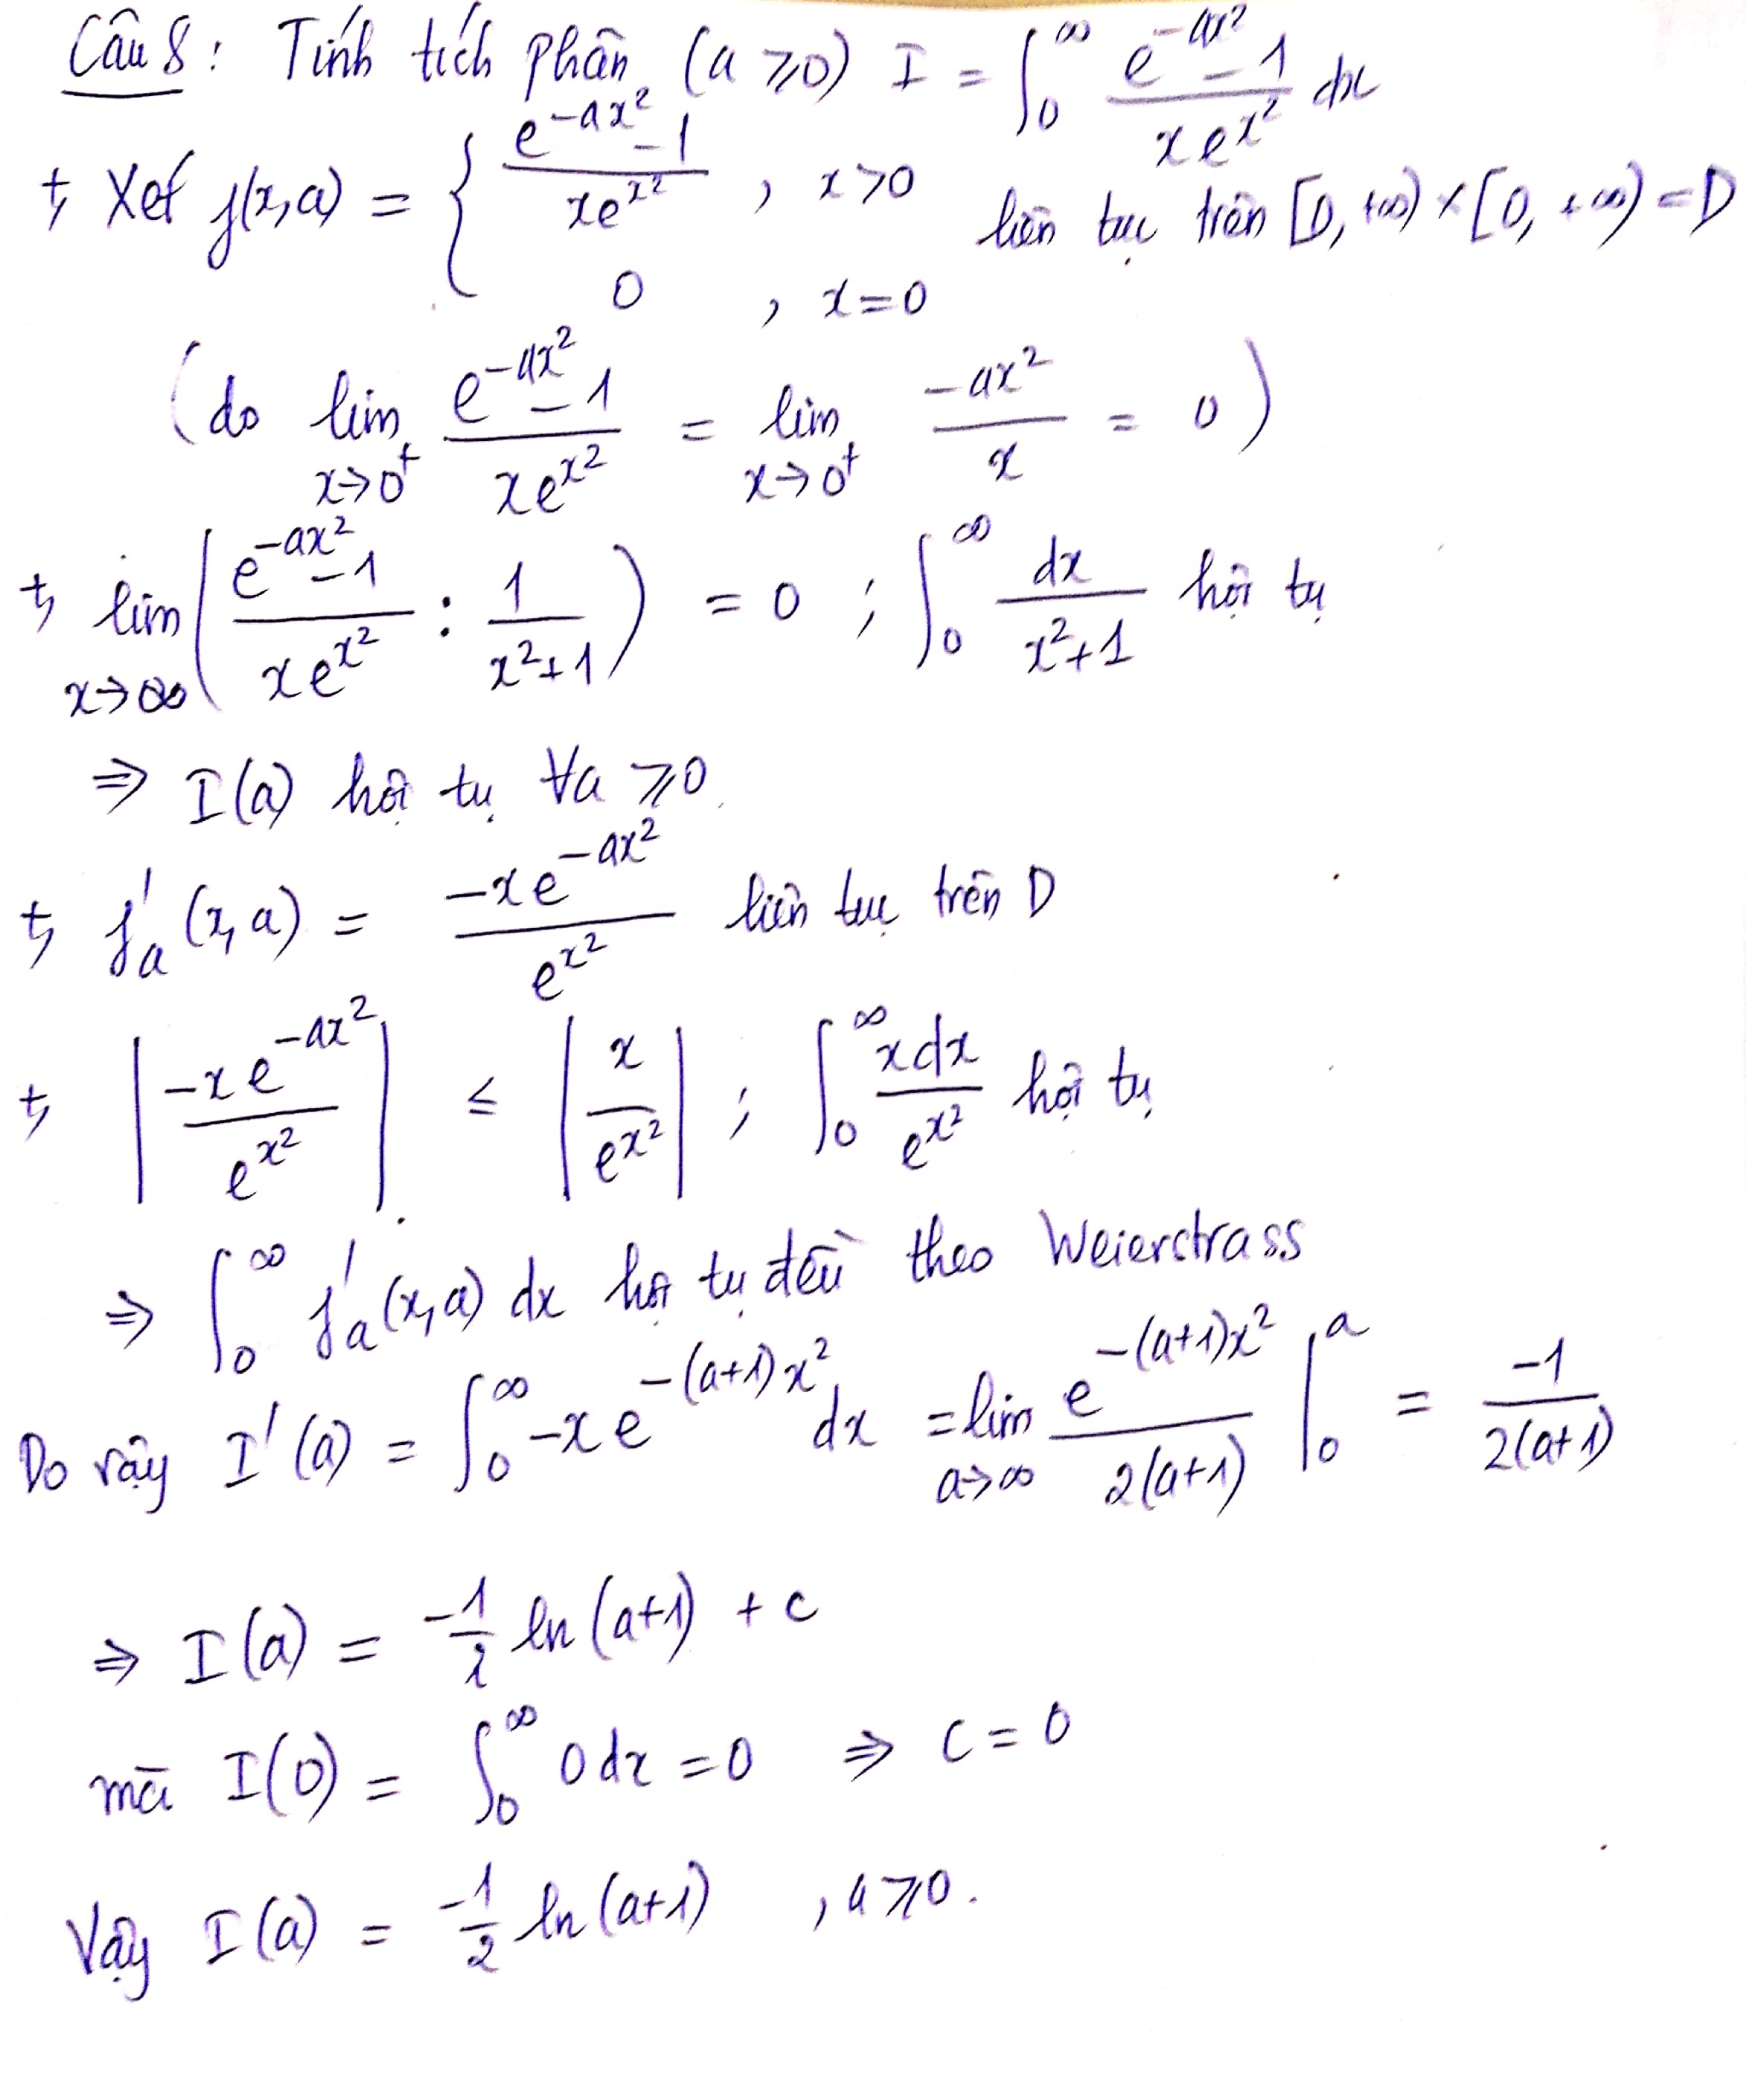 Câu 8: Tính tích phân (a ≥ 0) I = ∫₀^∞ (e^(-ax²) - 1)/(x e^(x²)) dx
+, Xét f(x,a) = { (e^(-ax²) - 1)/(x e^(x²)) , x > 0 ; 0 , x = 0 liên tục trên [0, +∞) × [0, +∞) = D
(do lim_(x→0⁺) (e^(-ax²) - 1)/(x e^(x²)) = lim_(x→0⁺) (-ax²)/x = 0)
+, lim_(x→∞) ( (e^(-ax²) - 1)/(x e^(x²)) : 1/(x²+1) ) = 0 ; ∫₀^∞ dx/(x²+1) hội tụ
⇒ I(a) hội tụ ∀a ≥ 0.
+, f'ₐ(x,a) = (-x e^(-ax²))/(e^(x²)) liên tục trên D
+, |(-x e^(-ax²))/(e^(x²))| ≤ |x/(e^(x²))| ; ∫₀^∞ (x dx)/(e^(x²)) hội tụ
⇒ ∫₀^∞ f'ₐ(x,a) dx hội tụ đều theo Weierstrass
Do vậy I'(a) = ∫₀^∞ -x e^(-(a+1)x²) dx = lim_(a→∞) (e^(-(a+1)x²))/(2(a+1)) |₀^a = -1/(2(a+1))
⇒ I(a) = -1/2 ln(a+1) + c
mà I(0) = ∫₀^∞ 0 dx = 0 ⇒ C = 0
Vậy I(a) = -1/2 ln(a+1) , a ≥ 0.